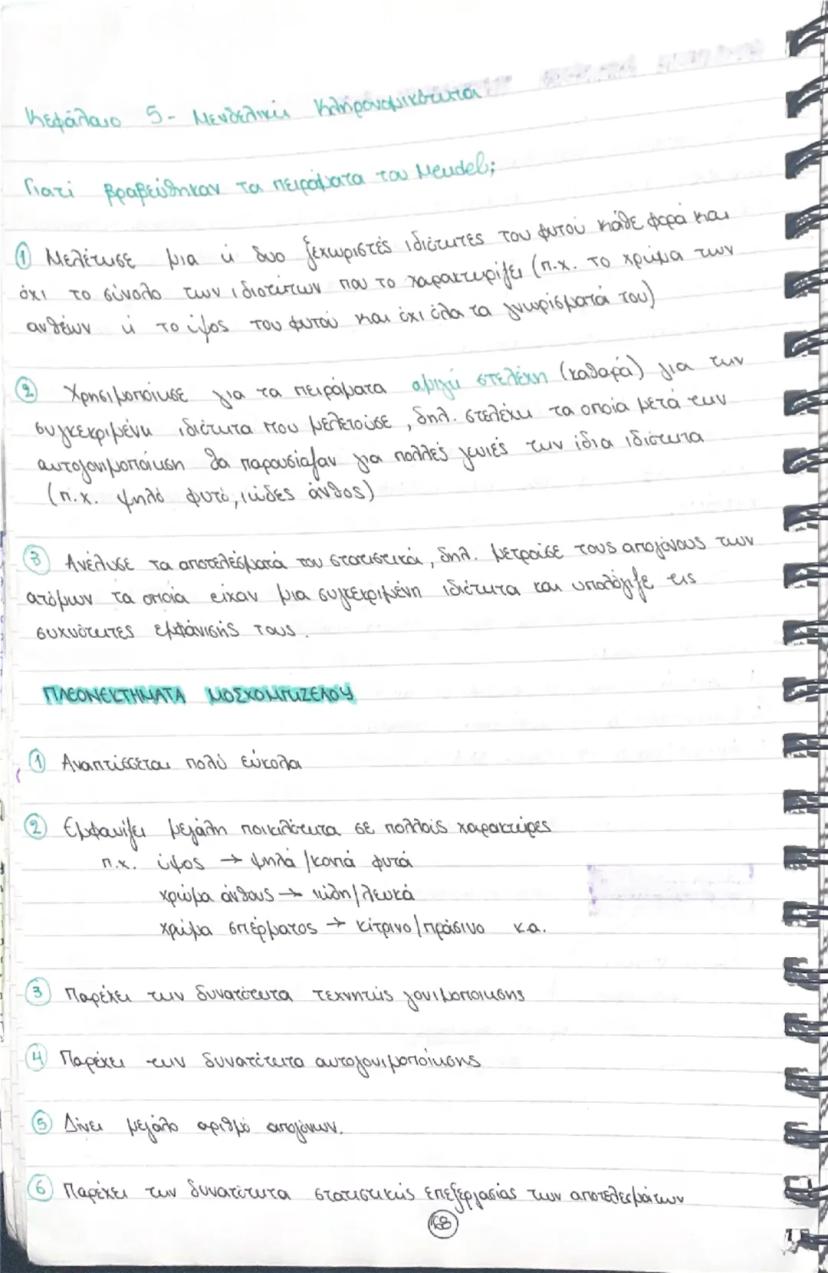 Κεφάλαιο 5 - Μενδελική Κληρονομικότητα
Γιατί βραβεύθηκαν τα πειράματα του Mendel;
① Μελέτησε μια ή δυο ξεχωριστές ιδιότητες του φυτού κάθε φορά και
όχι το σύνολο των ιδιοτήτων που το χαρακτηρίζει (π.χ. το χρώμα των
ανθέων ή το ύψος του φυτού και όχι όλα τα γνωρίσματά του)
② Χρησιμοποίησε για τα πειράματα αμιγή στελέχη (καθαρά) για την
συγκεκριμένη ιδιότητα που μελετούσε, δηλ. στελέχη τα οποία μετά την
αυτογονιμοποίηση θα παρουσίαζαν για πολλές γενιές την ίδια ιδιότητα
(π.χ. ψηλό φυτό, ιώδες άνθος)
③ Ανέλυσε τα αποτελέσματά του στατιστικά, δηλ. μετρούσε τους απογόνους των
ατόμων τα οποία είχαν μια συγκεκριμένη ιδιότητα και υπολόγιζε τις
συχνότητες εμφάνισής τους.
ΠΛΕΟΝΕΚΤΗΜΑΤΑ ΜΟΣΧΟΜΠΙΖΕΛΟΥ
① Αναπτύσσεται πολύ εύκολα
② Εμφανίζει μεγάλη ποικιλότητα σε πολλούς χαρακτήρες
π.χ. ύψος → ψηλά/κοντά φυτά
χρώμα άνθους → ιώδη/λευκά
χρώμα σπέρματος → κίτρινο/πράσινο κ.α.
③ Παρέχει την δυνατότητα τεχνητής γονιμοποίησης
④ Παρέχει την δυνατότητα αυτογονιμοποίησης
⑤ Δίνει μεγάλο αριθμό απογόνων.
⑥ Παρέχει την δυνατότητα στατιστικής επεξεργασίας των αποτελεσμάτων
68